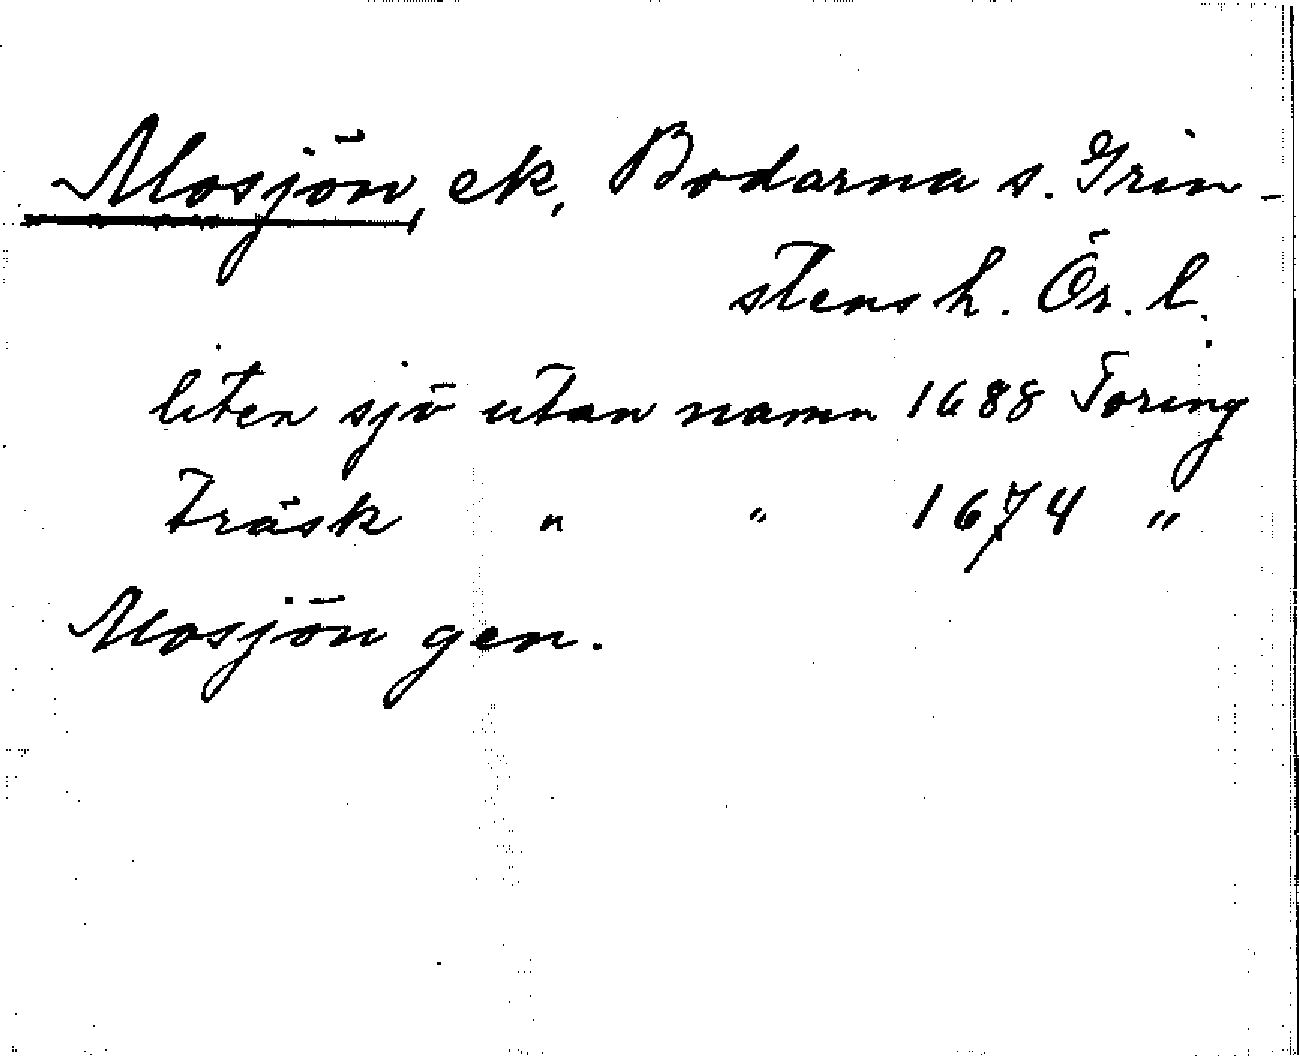 Mosjön, ek, Bodarna s. Grim-
stens h. Ör. l.
liten sjö utan namn 1688 Toring
Träsk " " 1674 "
Mosjön gen.